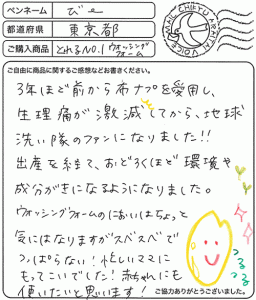 ペンネーム びe
都道府県 東京都
ご購入商品 とれるNO.1 ウォッシングフォーム
ご自由に商品に関するご感想などお書きください。
3年ほど前から布ナプを愛用し、
生理痛が激減してから、地球
洗い隊のファンになりました!!
出産を経て、おどろくほど環境や
成分がきになるようになりました。
ウォッシングフォームのにおいはちょっと
気にはなりますがスベスベで
つっぱらない!忙しいママに
もってこいでした!赤ちゃんにも
使いたいと思います!
つるつる
ご協力ありがとうございました。